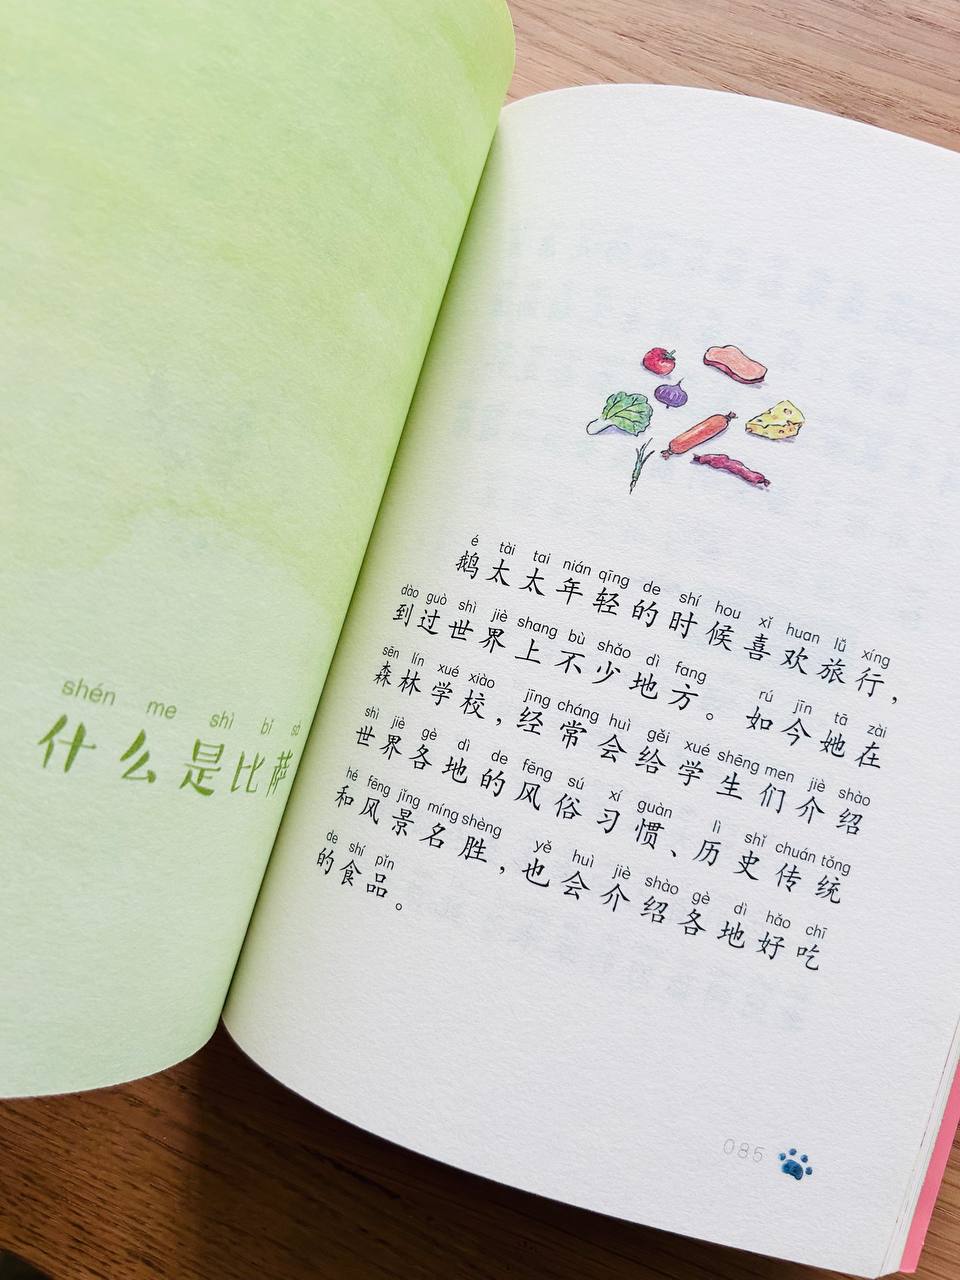 shén me shì bǐ sà
什么是比萨
é tài tai nián qīng de shí hou xǐ huan lǚ xíng
鹅太太年轻的时候喜欢旅行，
dào guò shì jiè shang bù shǎo dì fang rú jīn tā zài
到过世界上不少地方。如今她在
sēn lín xué xiào jīng cháng huì gěi xué shēng men jiè shào
森林学校，经常会给学生们介绍
shì jiè gè dì de fēng sú xí guàn lì shǐ chuán tǒng
世界各地的风俗习惯、历史传统
hé fēng jǐng míng shèng yě huì jiè shào gè dì hǎo chī
和风景名胜，也会介绍各地好吃
de shí pǐn
的食品。
085